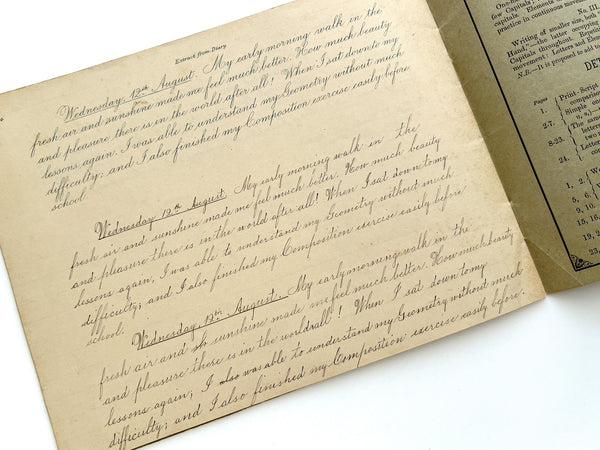 Extract from Diary
Wednesday, 12th August. My early morning walk in the
fresh air and sunshine made me feel much better. How much beauty
and pleasure there is in the world after all! When I sat down to my
lessons again. I was able to understand my Geometry without much
difficulty; and I also finished my Composition exercise easily before
school
Wednesday 12th August. My early morning walk in the
fresh air and sunshine made me feel much better. How much beauty
and pleasure there is in the world after all! When I sat down to my
lessons again, I was able to understand my Geometry without much
difficulty; and I also finished my Composition exercise easily before
school.
Wednesday, 12th August. My early morning walk in the
fresh air and sunshine made me feel much better. How much beauty
and pleasure there is in the world all! When I sat down to my
lessons again; I also was able to understand my Geometry without much
difficulty; and I also finished my Composition exercise easily before.
One-
few Capitals).
capitals. Elements
practice in continuous move
No. III,
Writing of smaller size, both
Hand,"—the latter occupying
Capitals throughout. Repeti
movement: Letters and Elem
N.B.—It is proposed to add to
DE
Pages
1 Print-Script
comparis
2-7. Simple one
8-23. The same
letters,
two
24. letters
1, 2.
5, 6
9, 10
15, 16
19, 2
23,